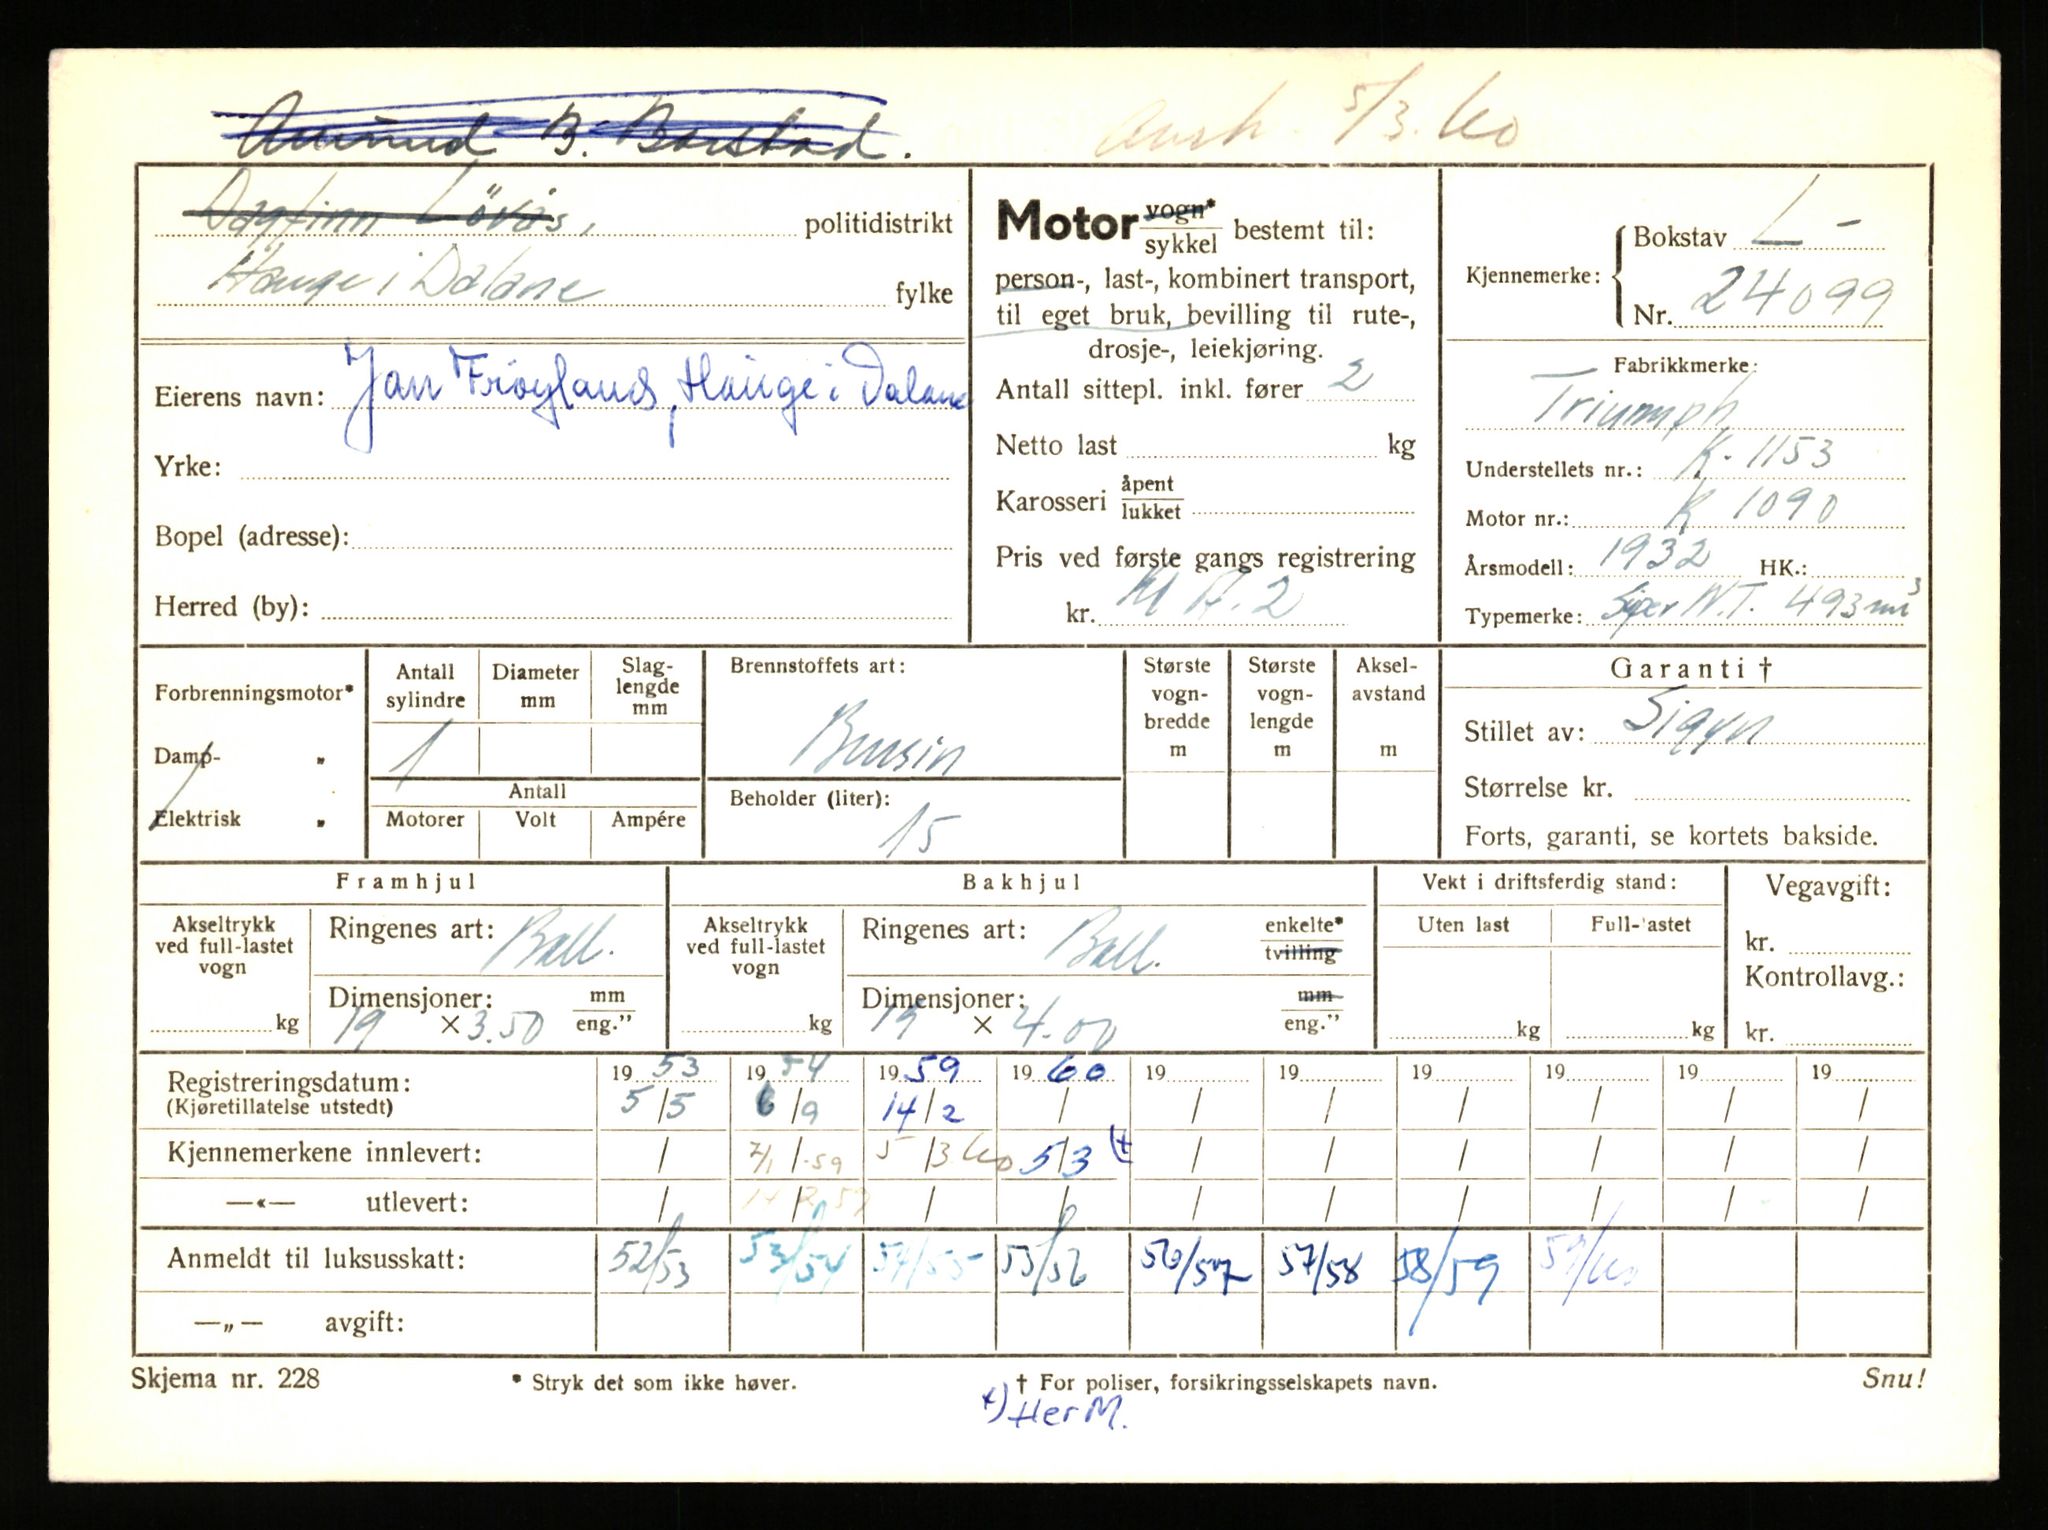 Amund B. Barstad. Avsk. 5/3.60
Dagfinn Lövås, politidistrikt
Hauge i Dalane fylke
Eierens navn: Jan Frøyland, Hauge i Dalane
Yrke:
Bopel (adresse):
Herred (by):
Motor vogn* / sykkel bestemt til:
person-, last-, kombinert transport,
til eget bruk, bevilling til rute-,
drosje-, leiekjøring.
Antall sittepl. inkl. fører 2
Netto last kg
Karosseri åpent / lukket
Pris ved første gangs registrering
kr. M A.2
Kjennemerke: Bokstav L-
Nr. 24099
Fabrikkmerke:
Triumph
Understellets nr.: K. 1153
Motor nr.: K 1090
Årsmodell: 1932 HK.:
Typemerke: Super N.T. 493 m³
Forbrenningsmotor*
Damp- „
Elektrisk „
Antall sylindre 1
Diameter mm
Slag-lengde mm
Antall
Motorer Volt Ampére
Brennstoffets art:
Bensin
Beholder (liter):
15
Største vogn-bredde m
Største vogn-lengde m
Aksel-avstand m
Garanti †
Stillet av: Sigyn
Størrelse kr.
Forts, garanti, se kortets bakside.
Framhjul
Akseltrykk ved full-lastet vogn kg
Ringenes art: Ball.
Dimensjoner: mm / eng."
19 × 3.50
Bakhjul
Akseltrykk ved full-lastet vogn kg
Ringenes art: Ball. enkelte* / tvilling
Dimensjoner: mm / eng."
19 × 4.00
Vekt i driftsferdig stand:
Uten last Full-lastet
kg kg
Vegavgift:
kr.
Kontrollavg.:
kr.
Registreringsdatum: 1953 1954 1959 1960 19 19 19 19 19 19
(Kjøretillatelse utstedt) 5/5 6/9 14/2 / / / / / / /
Kjennemerkene innlevert: / 7/1 -59 5/3 60 5/3 +) / / / / / /
—«— utlevert: / 14/2 59 / / / / / / / /
Anmeldt til luksusskatt: 52/53 53/54 54/55 55/56 56/57 57/58 58/59 59/60
—„— avgift:
Skjema nr. 228 * Stryk det som ikke høver. † For poliser, forsikringsselskapets navn. Snu!
+) Her M.